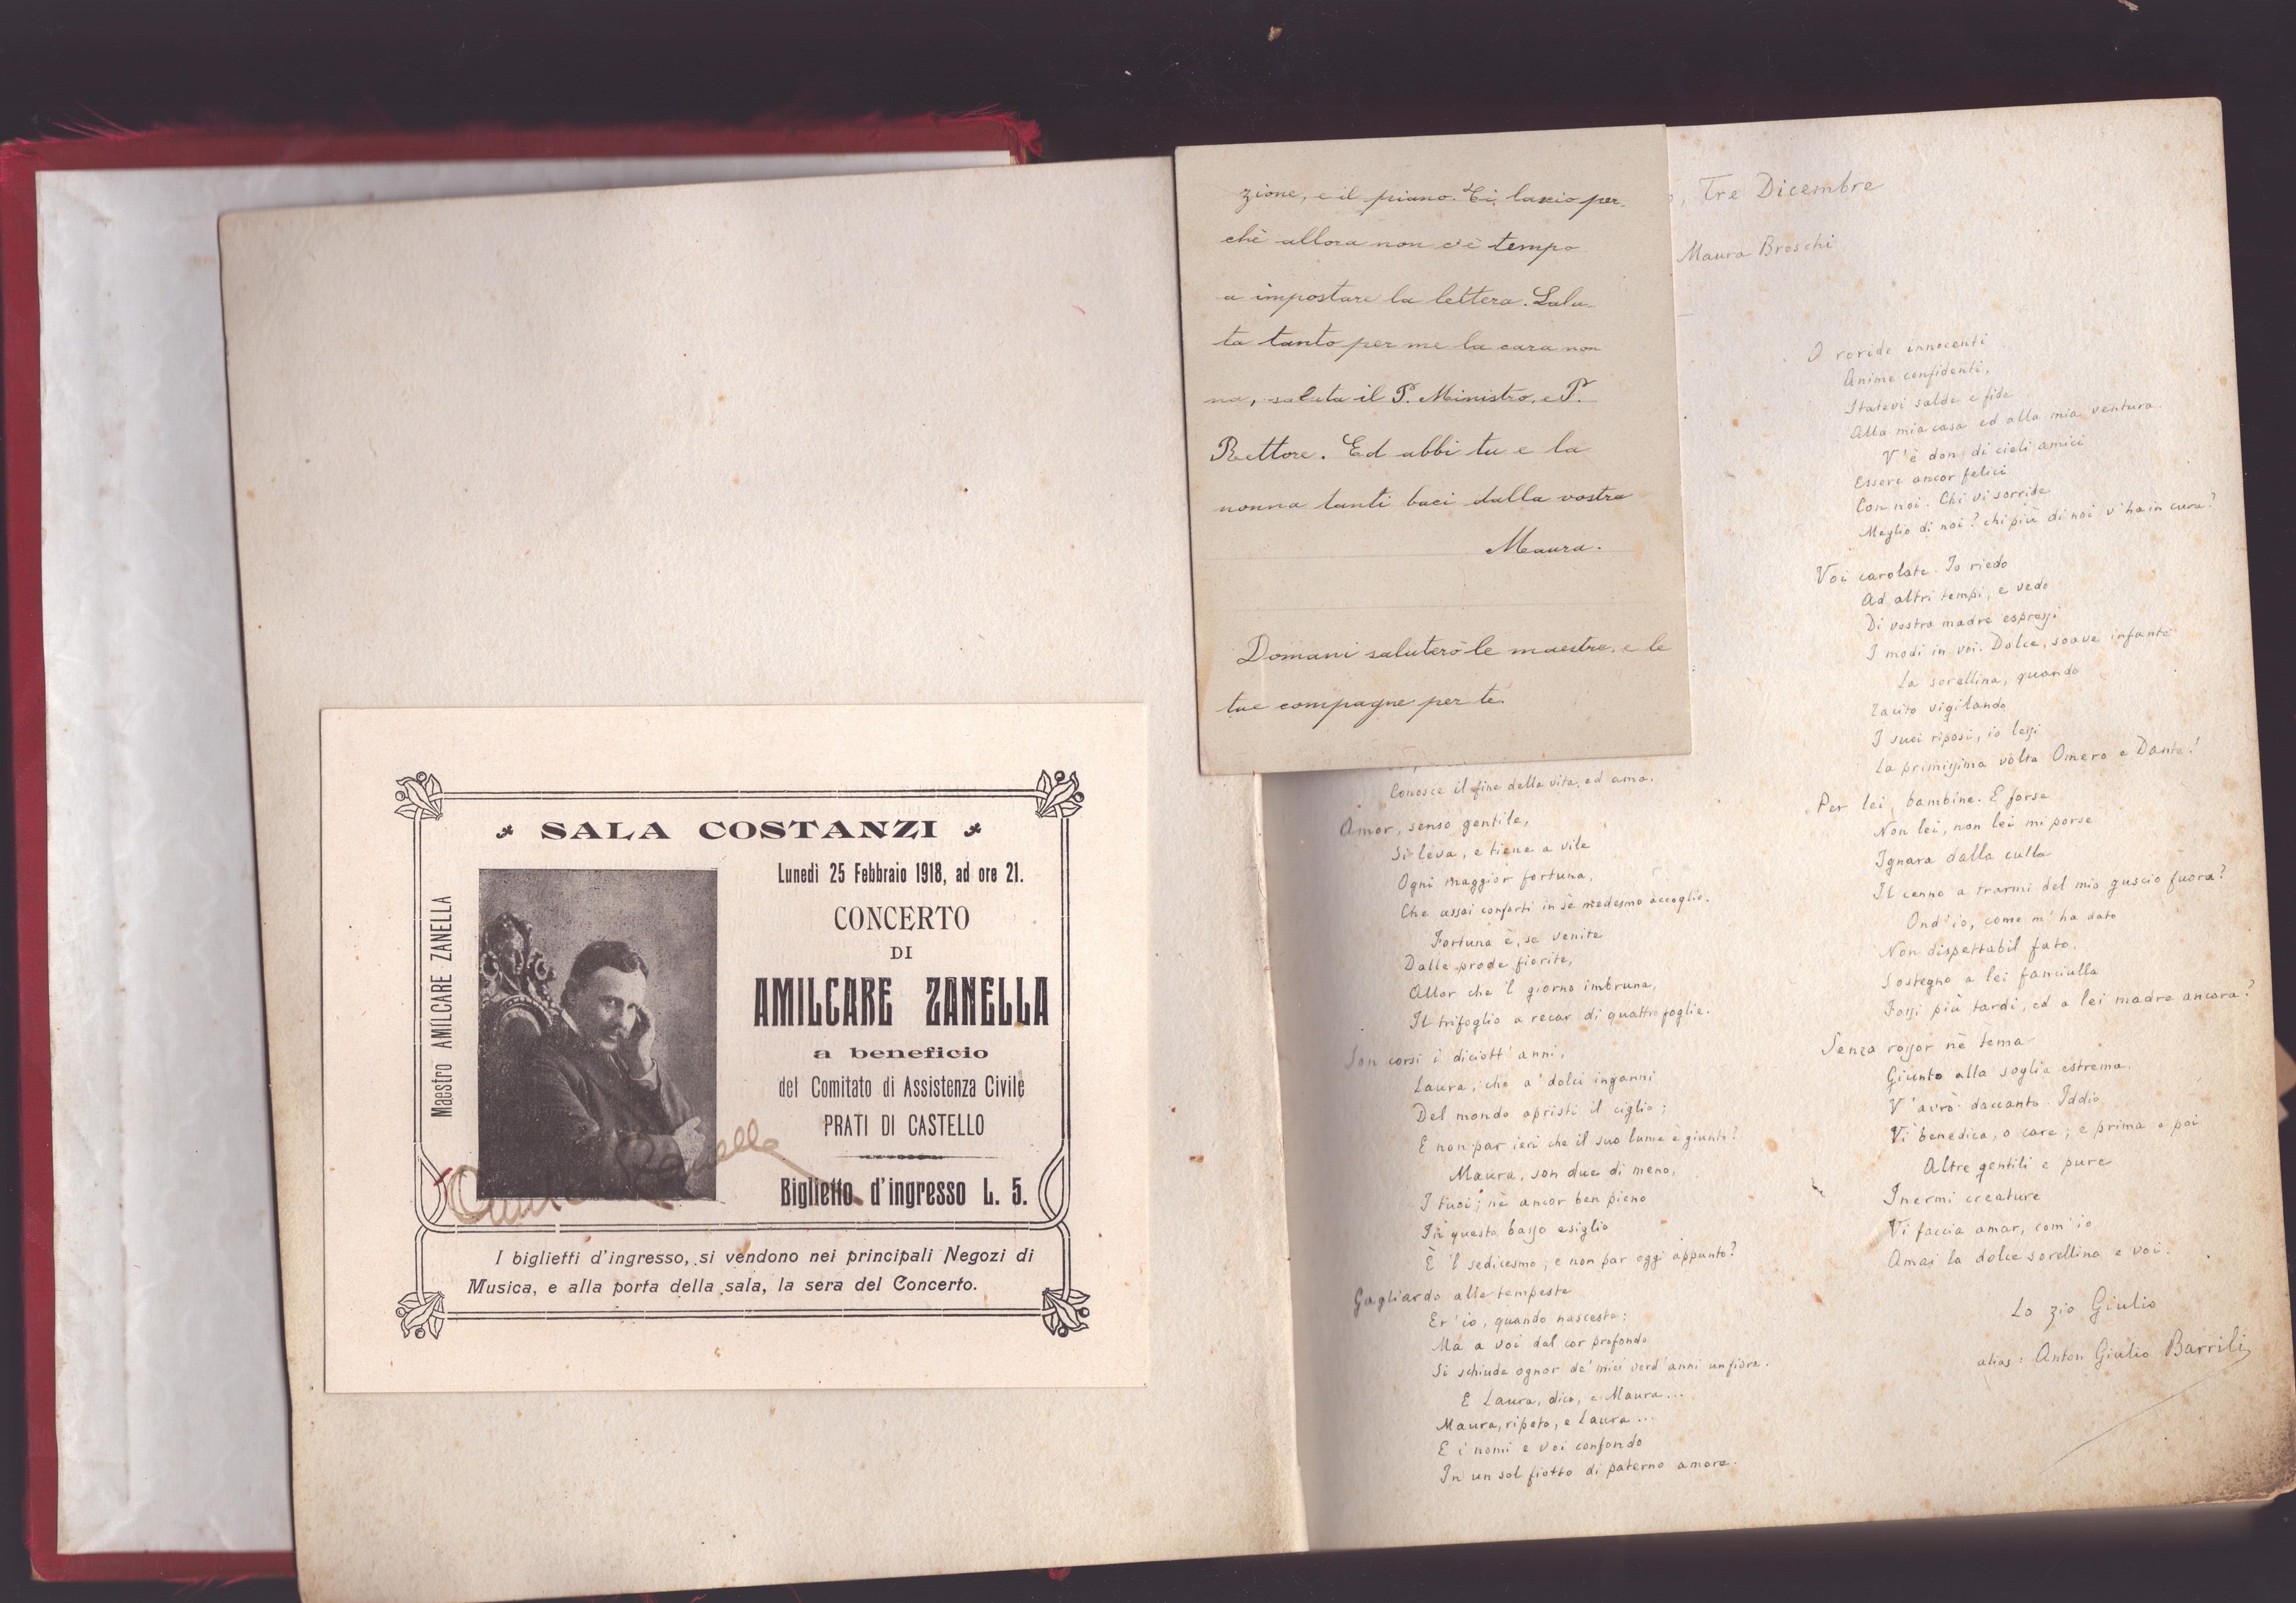 SALA COSTANZI
Maestro AMILCARE ZANELLA
Lunedì 25 Febbraio 1918, ad ore 21.
CONCERTO
DI
AMILCARE ZANELLA
a beneficio
del Comitato di Assistenza Civile
PRATI DI CASTELLO
Biglietto d'ingresso L. 5.
I biglietti d'ingresso, si vendono nei principali Negozi di
Musica, e alla porta della sala, la sera del Concerto.
zione, e il piano. Ti lascio per-
chè allora non c'è tempo
a impostare la lettera. Salu-
ta tanto per me la cara non
na, saluta il P. Ministro, e P.
Rettore. Ed abbi tu e la
nonna tanti baci dalla vostra
Maura.
Domani saluterò le maestre, e le
tue compagne per te.
Tre Dicembre
Maura Breschi
Conosce il fine della vita, ed ama.
Amor, senso gentile,
Si leva, e tiene a vile
Ogni maggior fortuna,
Che assai conforti in sè medesmo accoglie.
Fortuna è, se venite
Dalle prode fiorite,
Allor che 'l giorno imbruna,
Il trifoglio a recar di quattro foglie.
Son corsi i diciott' anni,
Laura, che a' dolci inganni
Del mondo apristi il ciglio;
E non par ieri che il suo lume è giunto?
Maura, son due di meno,
I tuoi; nè ancor ben pieno
In questo basso esiglio
È 'l sedicesmo; e non par oggi appunto?
Gagliardo alle tempeste
Er' io, quando nasceste;
Ma a voi dal cor profondo
Si schiude ognor de' miei verd' anni un fiore.
E Laura, dico, e Maura...
Maura, ripeto, e Laura...
E i nomi e voi confondo
In un sol fiotto di paterno amore.
O roride innocenti
Anime confidenti,
Statevi salde e fide
Alla mia casa ed alla mia ventura.
V'è don di cieli amici
Essere ancor felici
Con noi. Chi vi sorride
Meglio di noi? chi più di noi v'ha in cura?
Voi carolate. Io riedo
Ad altri tempi, e vedo
Di vostra madre espressi
I modi in voi. Dolce, soave infante
La sorellina, quando
Tacito vigilando
I suoi riposi, io lessi
La primissima volta Omero e Dante!
Per lei, bambine. E forse
Non lei, non lei mi porse
Ignara dalla culla
Il cenno a trarmi del mio guscio fuora?
Ond' io, come m' ha dato
Non dispettabil fato,
Sostegno a lei fanciulla
Fossi più tardi, ed a lei madre ancora?
Senza rossor nè tema
Giunto alla soglia estrema,
V'avrò daccanto. Iddio
Vi benedica, o care; e prima e poi
Altre gentili e pure
Inermi creature
Vi faccia amar, com' io
Amai la dolce sorellina e voi.
Lo zio Giulio
alias: Anton Giulio Barrili